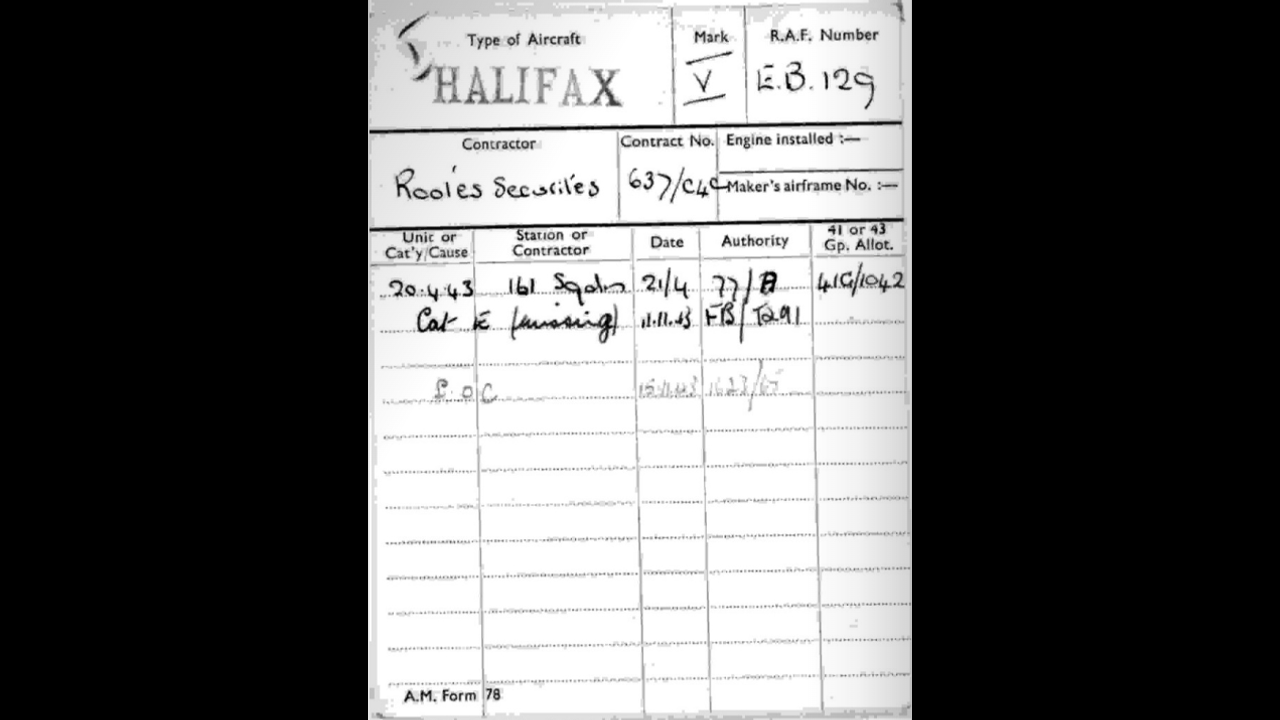 Type of Aircraft Mark R.A.F. Number
HALIFAX V E.B.129
Contractor Contract No. Engine installed :—
Rootes Securities 637/C4C Maker's airframe No. :—
Unit or Cat'y/Cause Station or Contractor Date Authority 41 or 43 Gp. Allot.
20.4.43 161 Sqdn 21/4 77/ 41G/1042
Cat E (missing) 11.11.43 FB/T291
S.O C
A.M. Form 78